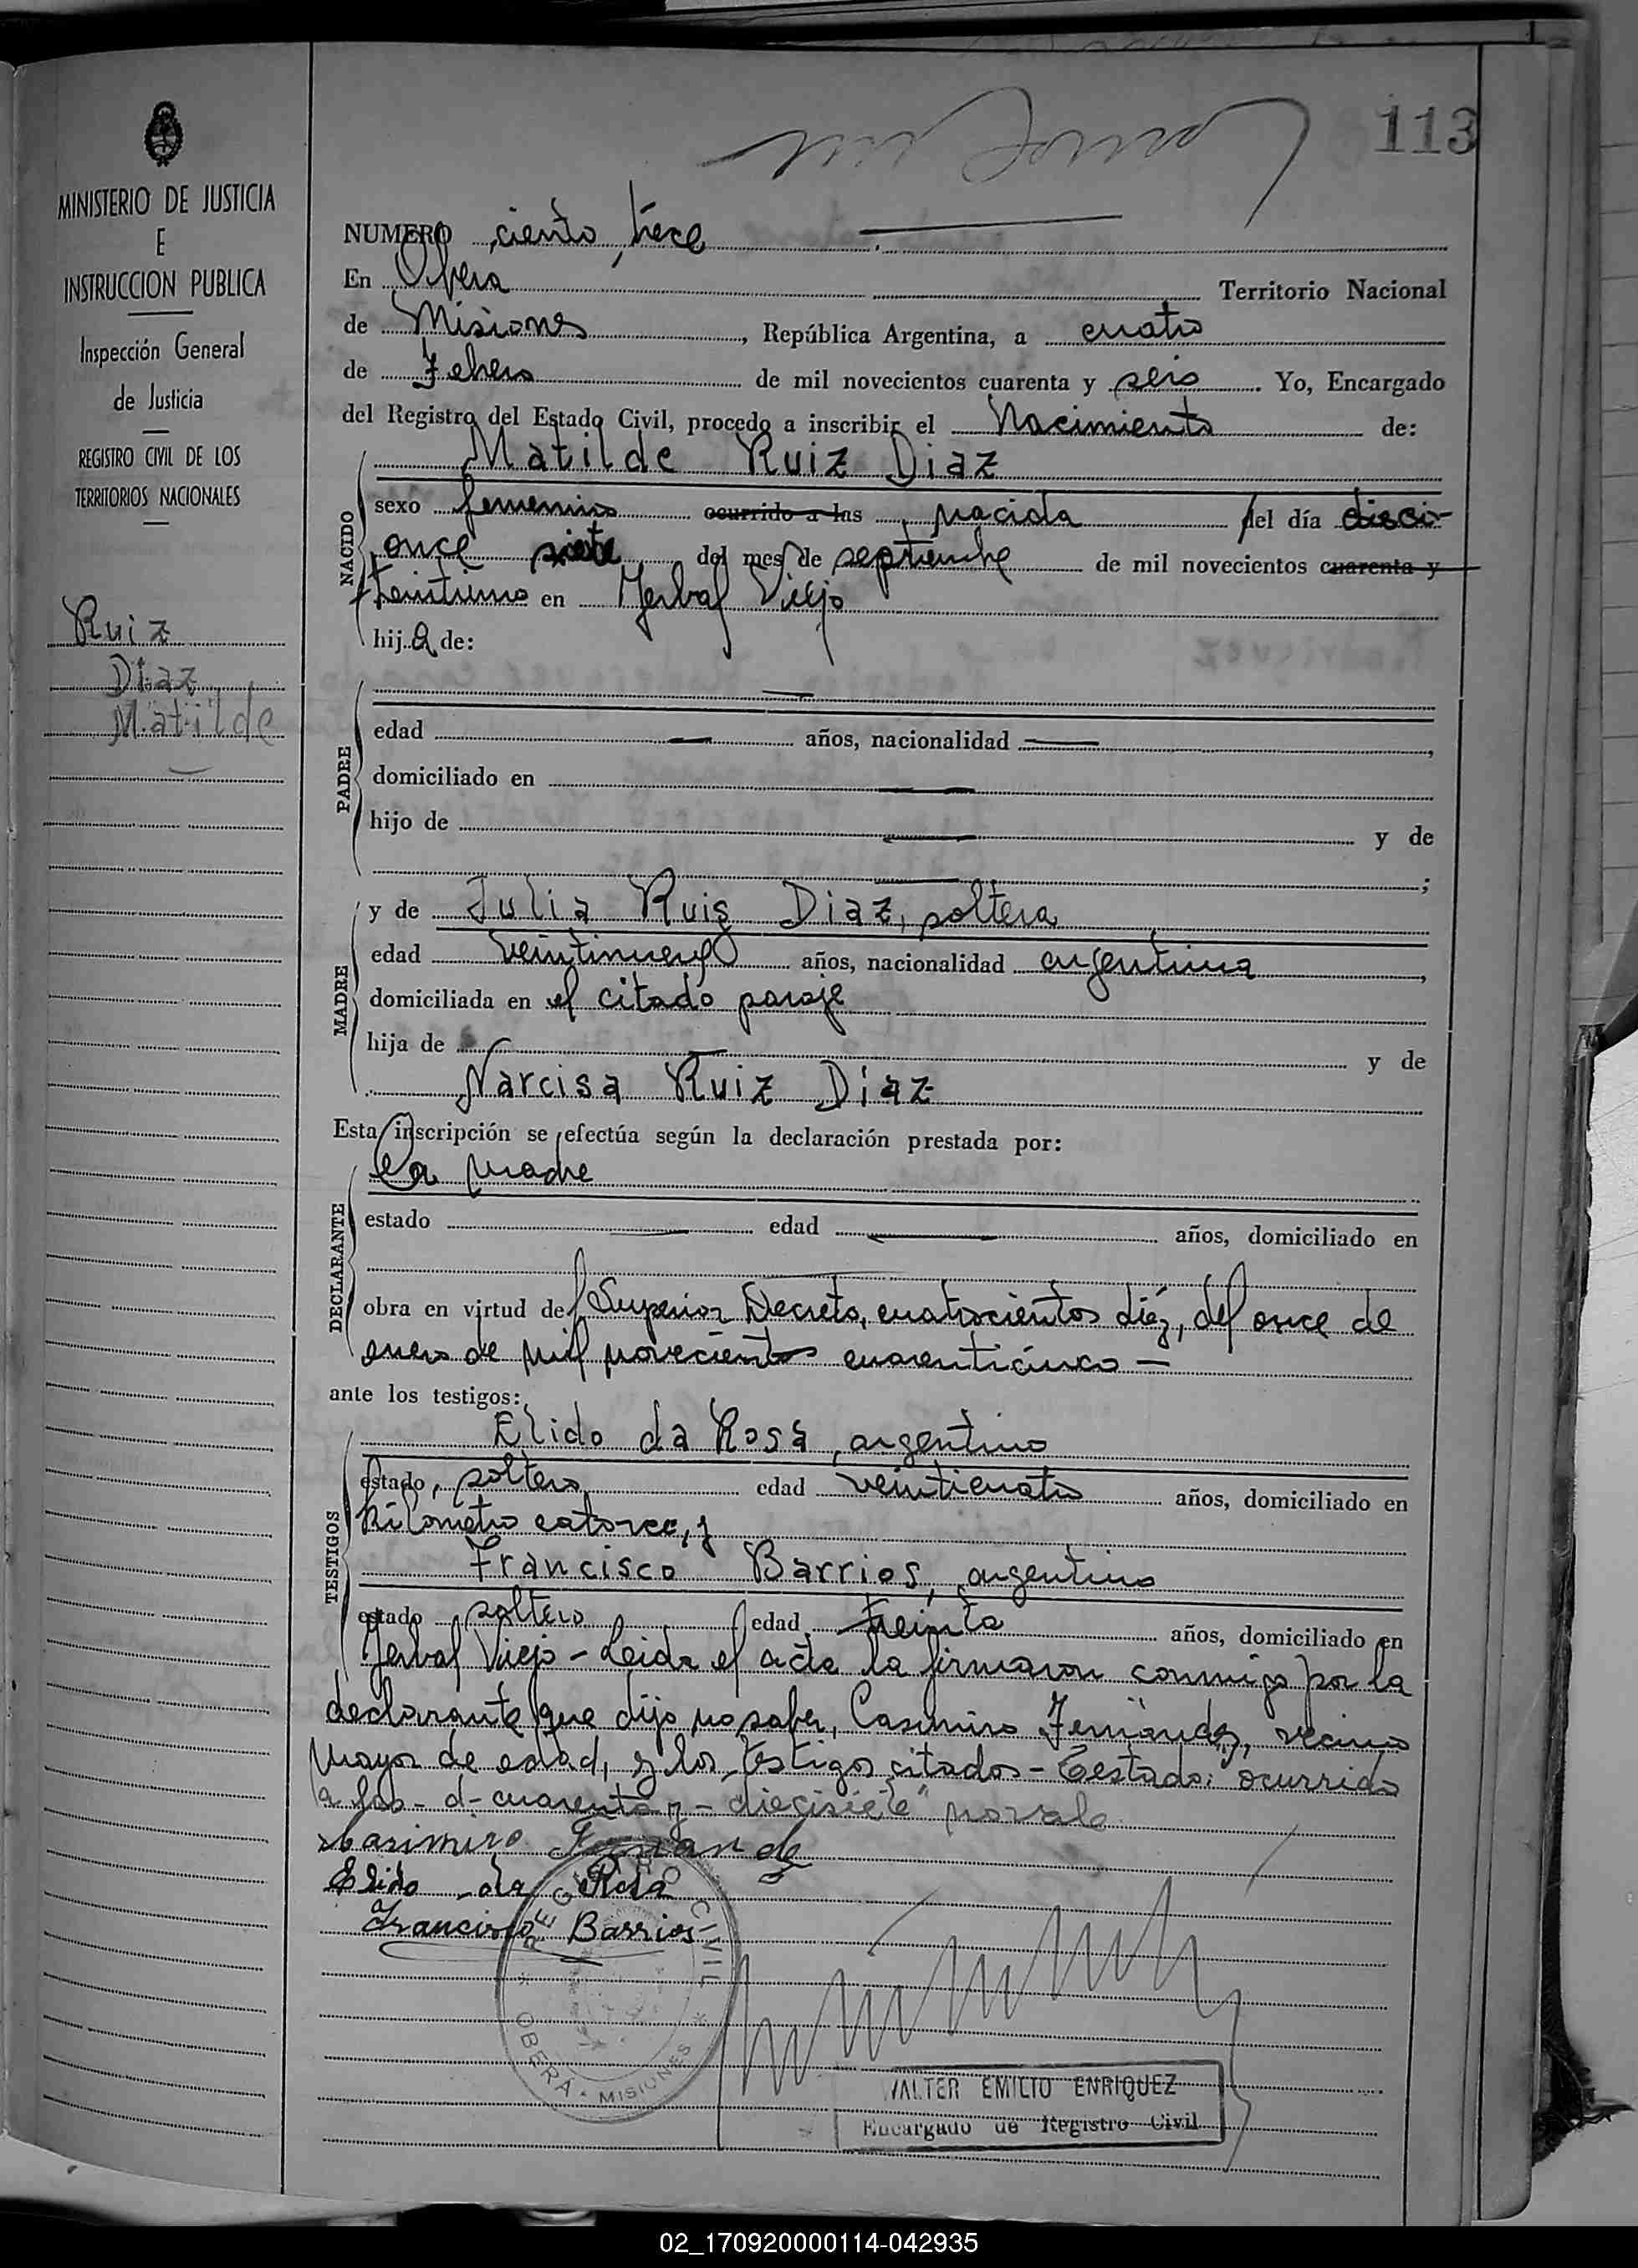 113
MINISTERIO DE JUSTICIA
E
INSTRUCCION PUBLICA
Inspección General
de Justicia
REGISTRO CIVIL DE LOS
TERRITORIOS NACIONALES
Ruiz
Diaz
Matilde
NUMERO ciento trece
En Obera Territorio Nacional
de Misiones, República Argentina, a cuatro
de Febrero de mil novecientos cuarenta y seis. Yo, Encargado
del Registro del Estado Civil, procedo a inscribir el Nacimiento de:
NACIDO
Matilde Ruiz Diaz
sexo femenino ocurrido a las nacida del día dieci-
once siete del mes de septiembre de mil novecientos cuarenta y
treintiuno en Yerbal Viejo
hija de:
PADRE
edad años, nacionalidad ,
domiciliado en
hijo de y de
;
MADRE
y de Julia Ruis Diaz, soltera
edad veintinueve años, nacionalidad argentina,
domiciliada en el citado paraje
hija de y de
Narcisa Ruiz Diaz
Esta inscripción se efectúa según la declaración prestada por:
DECLARANTE
la madre
estado edad años, domiciliado en
obra en virtud del Superior Decreto, cuatrocientos diez, del once de
enero de mil novecientos cuarenticinco —
ante los testigos:
TESTIGOS
Elido da Rosa, argentino
estado, soltero edad veinticuatro años, domiciliado en
kilometro catorce, y
Francisco Barrios, argentino
estado soltero edad treinta años, domiciliado en
Yerbal Viejo - Leida el acta la firmaron conmigo por la
declarante que dijo no saber, Casimiro Fernandez, vecino
mayor de edad, y los testigos citados - Testado: "ocurrido
a las - d - cuarenta y - diecisiete" no vale
Casimiro Fernandez
Elido da Rosa
Francisco Barrios
REGISTRO CIVIL
* OBERA - MISIONES *
WALTER EMILIO ENRIQUEZ
Encargado de Registro Civil
02_170920000114-042935